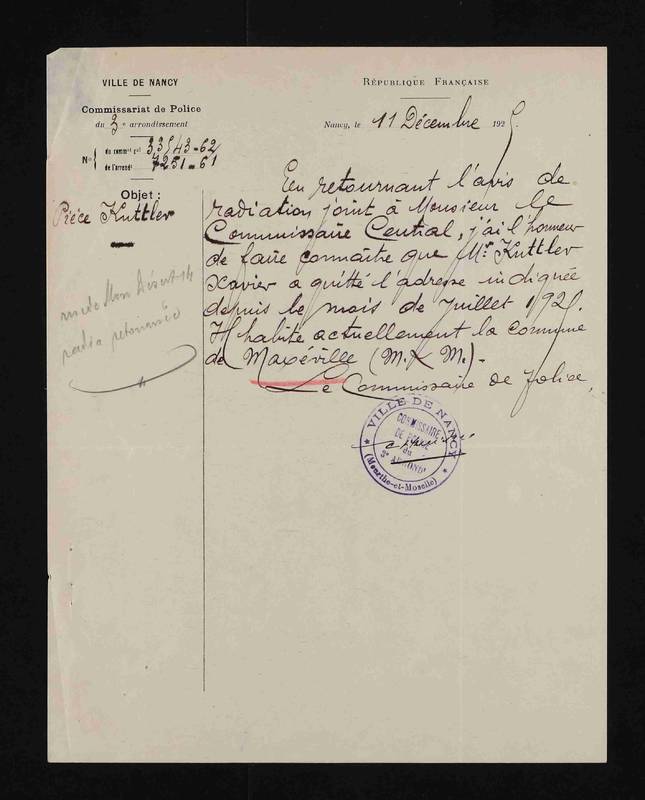 VILLE DE NANCY
Commissariat de Police
du 3e arrondissement
N° du commt gal 33543-62
de l'arrondt 7251-61
Objet :
Pièce Kuttler
RÉPUBLIQUE FRANÇAISE
Nancy, le 11 Décembre 1925.
En retournant l'avis de
radiation joint à Monsieur le
Commissaire Central, j'ai l'honneur
de faire connaître que Mr Kuttler
Xavier a quitté l'adresse indiquée
depuis le mois de Juillet 1925.
Il habite actuellement la commune
de Maxéville (M. & M.).-
Le Commissaire de Police,
rue de Mon Désert 14
VILLE DE NANCY
COMMISSAIRE
DE POLICE
du
3e ARRONDt
(Meurthe-et-Moselle)